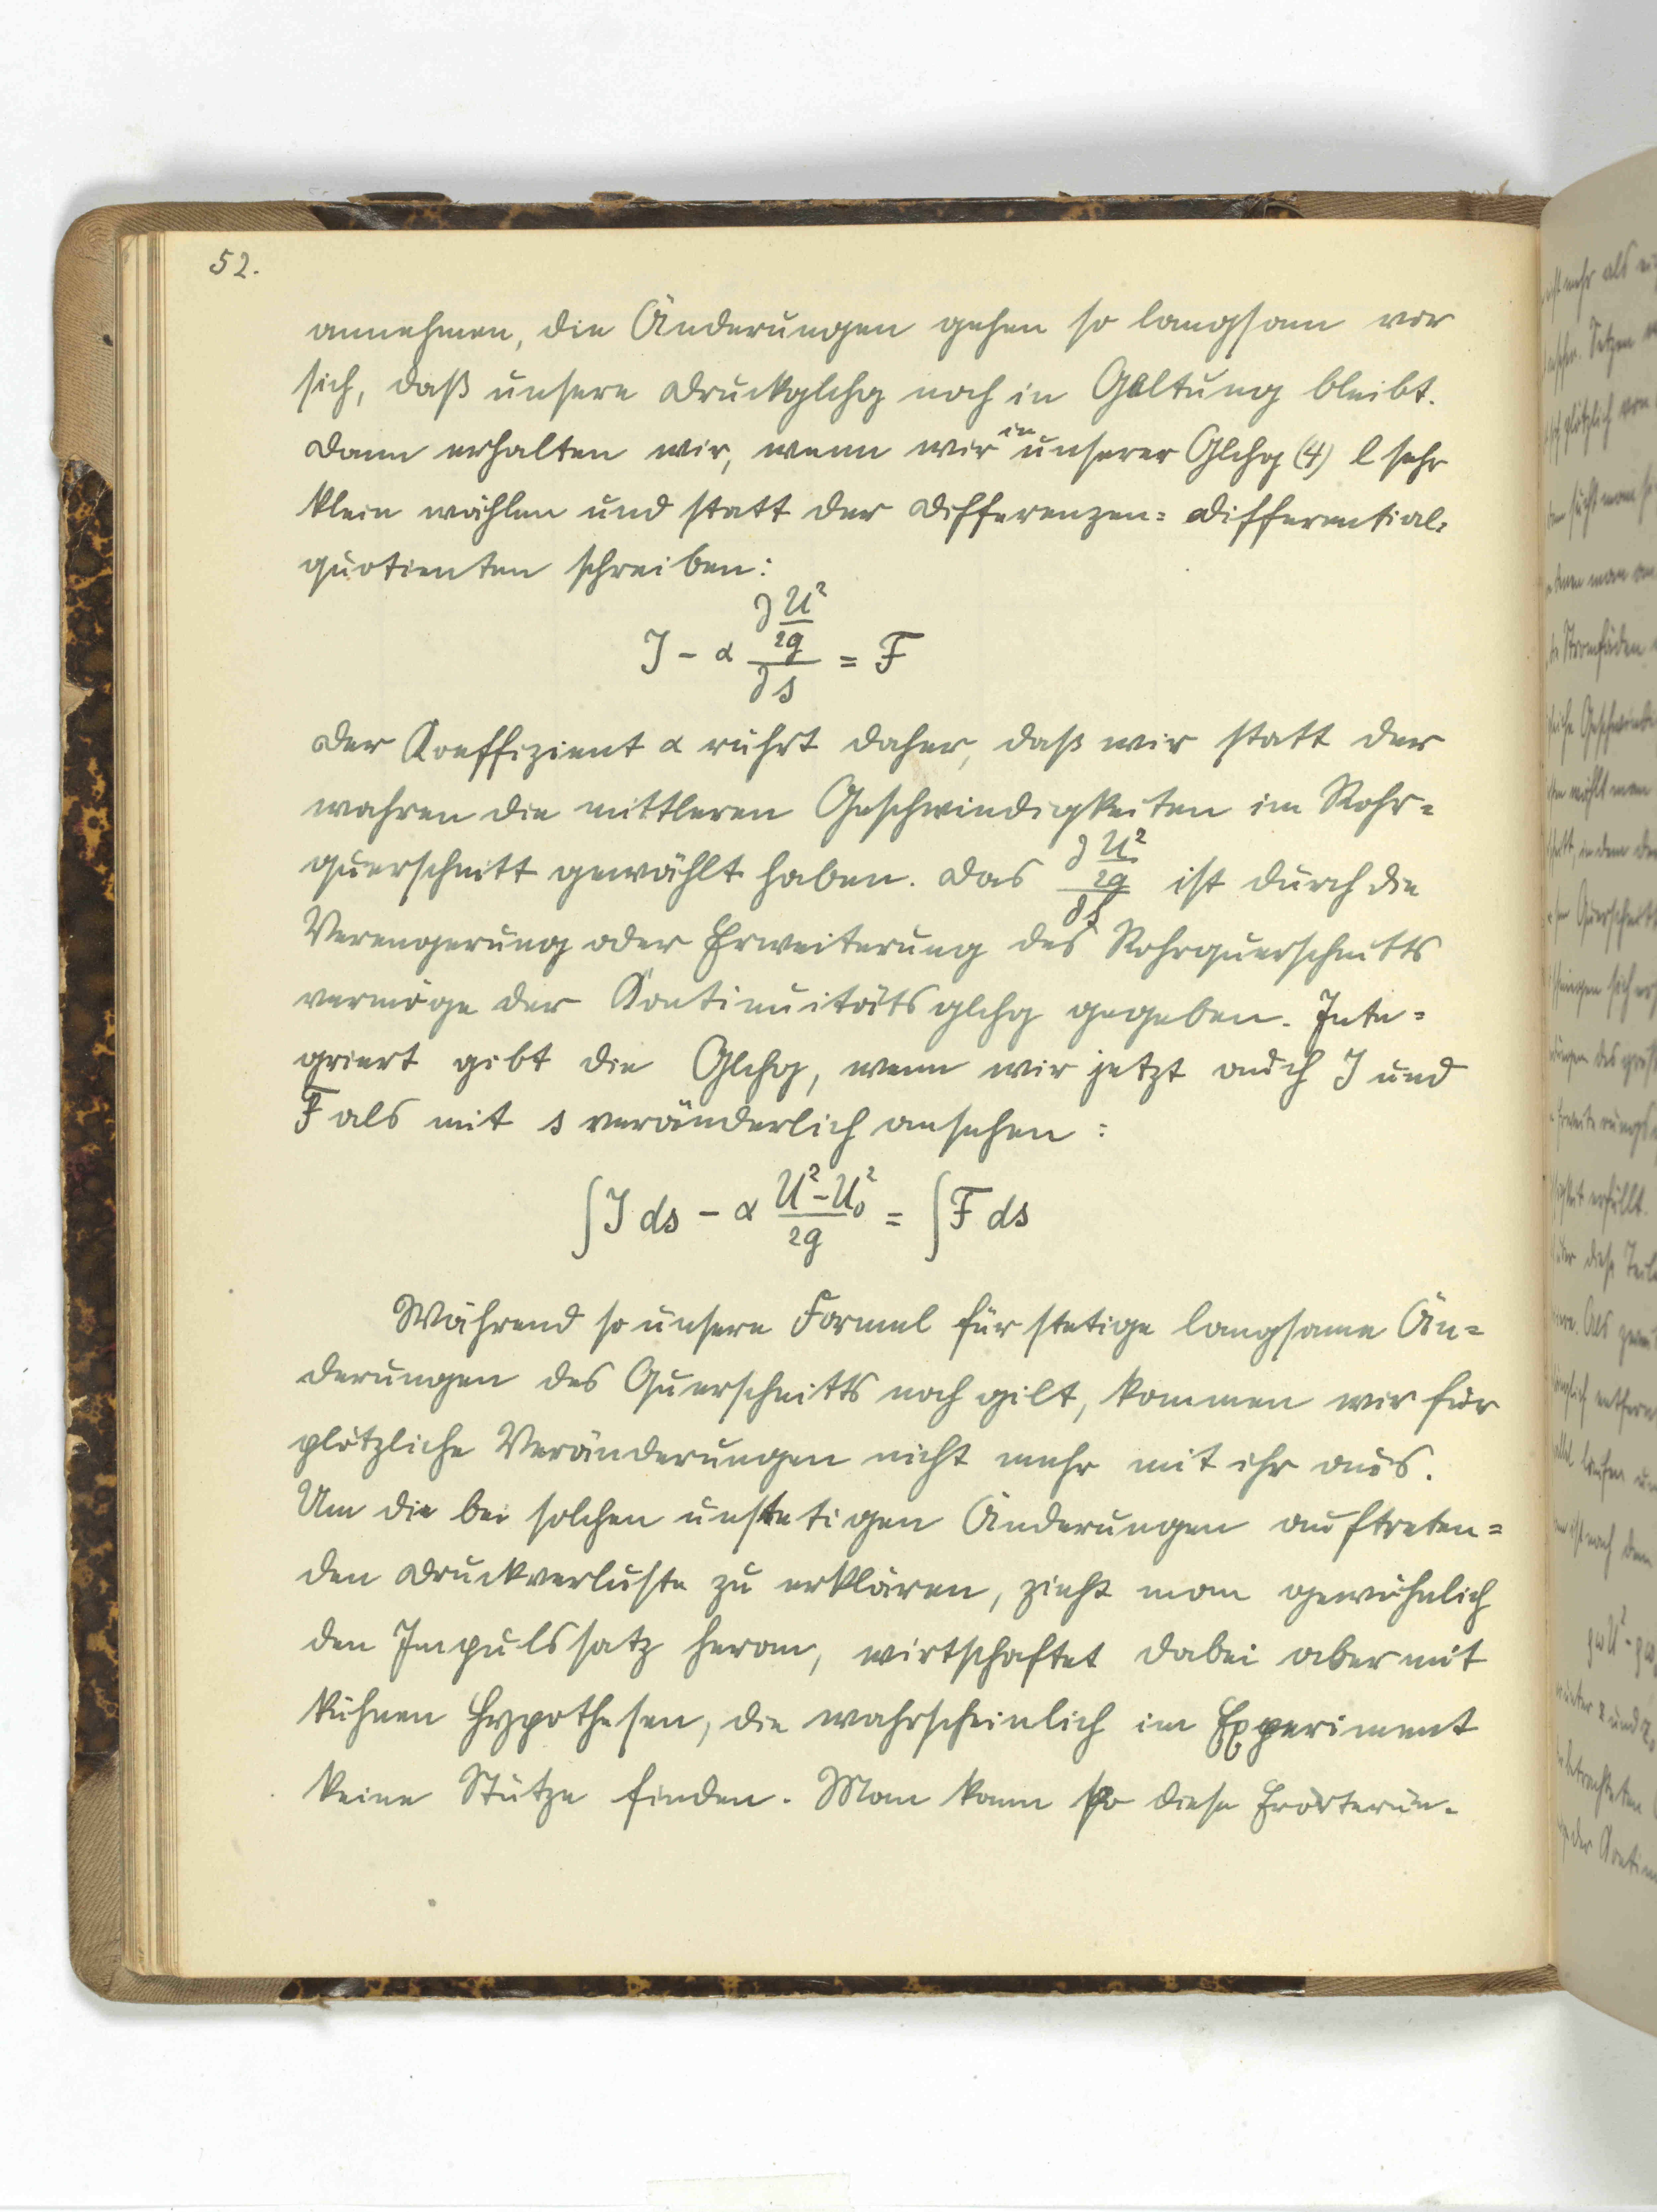 52.
annehmen, die Änderungen gehen so langsam vor
sich, daß unsere Druckglchg noch in Geltung bleibt.
Dann erhalten wir, wenn wir in unserer Glchg (4) l sehr
klein wählen und statt der Differenzen= Differential=
quotienten schreiben:
J - α ∂ U²/2g / ∂s = F
Der Koeffizient α rührt daher, daß wir statt der
wahren die mittleren Geschwindigkeiten im Rohr=
querschnitt gewählt haben. Das ∂ U²/2g / ∂s ist durch die
Verengerung oder Erweiterung des Rohrquerschnitts
vermöge der Kontinuitätsglchg gegeben. Inte=
griert gibt die Glchg, wenn wir jetzt auch J und
F als mit s veränderlich ansehen:
∫ J ds - α U² - U₀² / 2g = ∫ F ds
Während so unsere Formel für stetige langsame Än=
derungen des Querschnitts noch gilt, kommen wir für
plötzliche Veränderungen nicht mehr mit ihr aus.
Um die bei solchen unstetigen Änderungen auftreten=
den Druckverluste zu erklären, zieht man gewöhnlich
den Impulssatz heran, wirtschaftet dabei aber mit
kühnen Hypothesen, die wahrscheinlich im Experiment
keine Stütze finden. Man kann so diese Erörterun-